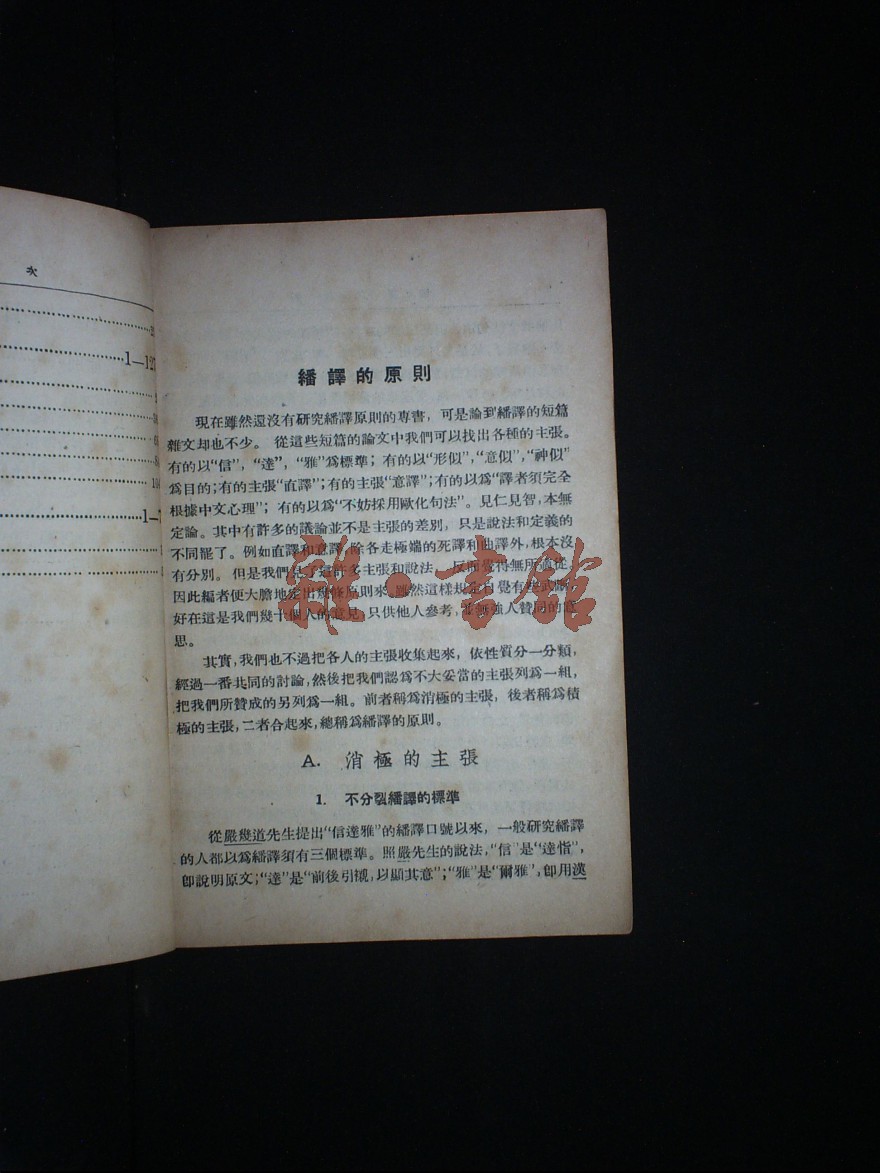 次
1—127
1—7
繙譯的原則
現在雖然還沒有研究繙譯原則的專書，可是論到繙譯的短篇
雜文却也不少。從這些短篇的論文中我們可以找出各種的主張。
有的以“信”，“達”，“雅”爲標準；有的以“形似”，“意似”，“神似”
爲目的；有的主張“直譯”；有的主張“意譯”；有的以爲“譯者須完全
根據中文心理”；有的以爲“不妨採用歐化句法”。見仁見智，本無
定論。其中有許多的議論並不是主張的差別，只是說法和定義的
不同罷了。例如直譯和意譯，除各走極端的死譯和曲譯外，根本沒
有分別。但是我們見了這許多主張和說法，反而覺得無所適從，
因此編者便大膽地定出幾條原則來，雖然這樣規定自覺有些武斷，
好在這是我們幾十個人的意見，只供他人參考，並無強人贊同的意
思。
其實，我們也不過把各人的主張收集起來，依性質分一分類，
經過一番共同的討論，然後把我們認爲不大妥當的主張列爲一組，
把我們所贊成的另列爲一組。前者稱爲消極的主張，後者稱爲積
極的主張，二者合起來，總稱爲繙譯的原則。
A. 消極的主張
1. 不分裂繙譯的標準
從嚴幾道先生提出“信達雅”的繙譯口號以來，一般研究繙譯
的人都以爲繙譯須有三個標準。照嚴先生的說法，“信”是“達恉”，
卽說明原文；“達”是“前後引襯，以顯其意”；“雅”是“爾雅”，卽用漢
雜·書館